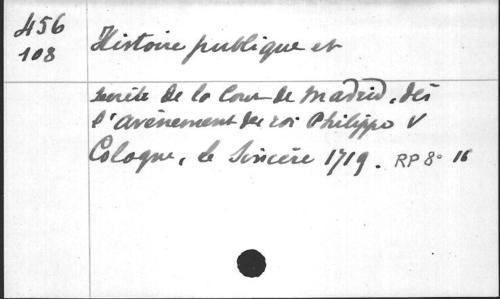 456
108
Histoire publique et
secrète de la Cour de Madrid, dès
l'avènement du roi Philippe V
Cologne, le Sincère 1719. RP 8° 16